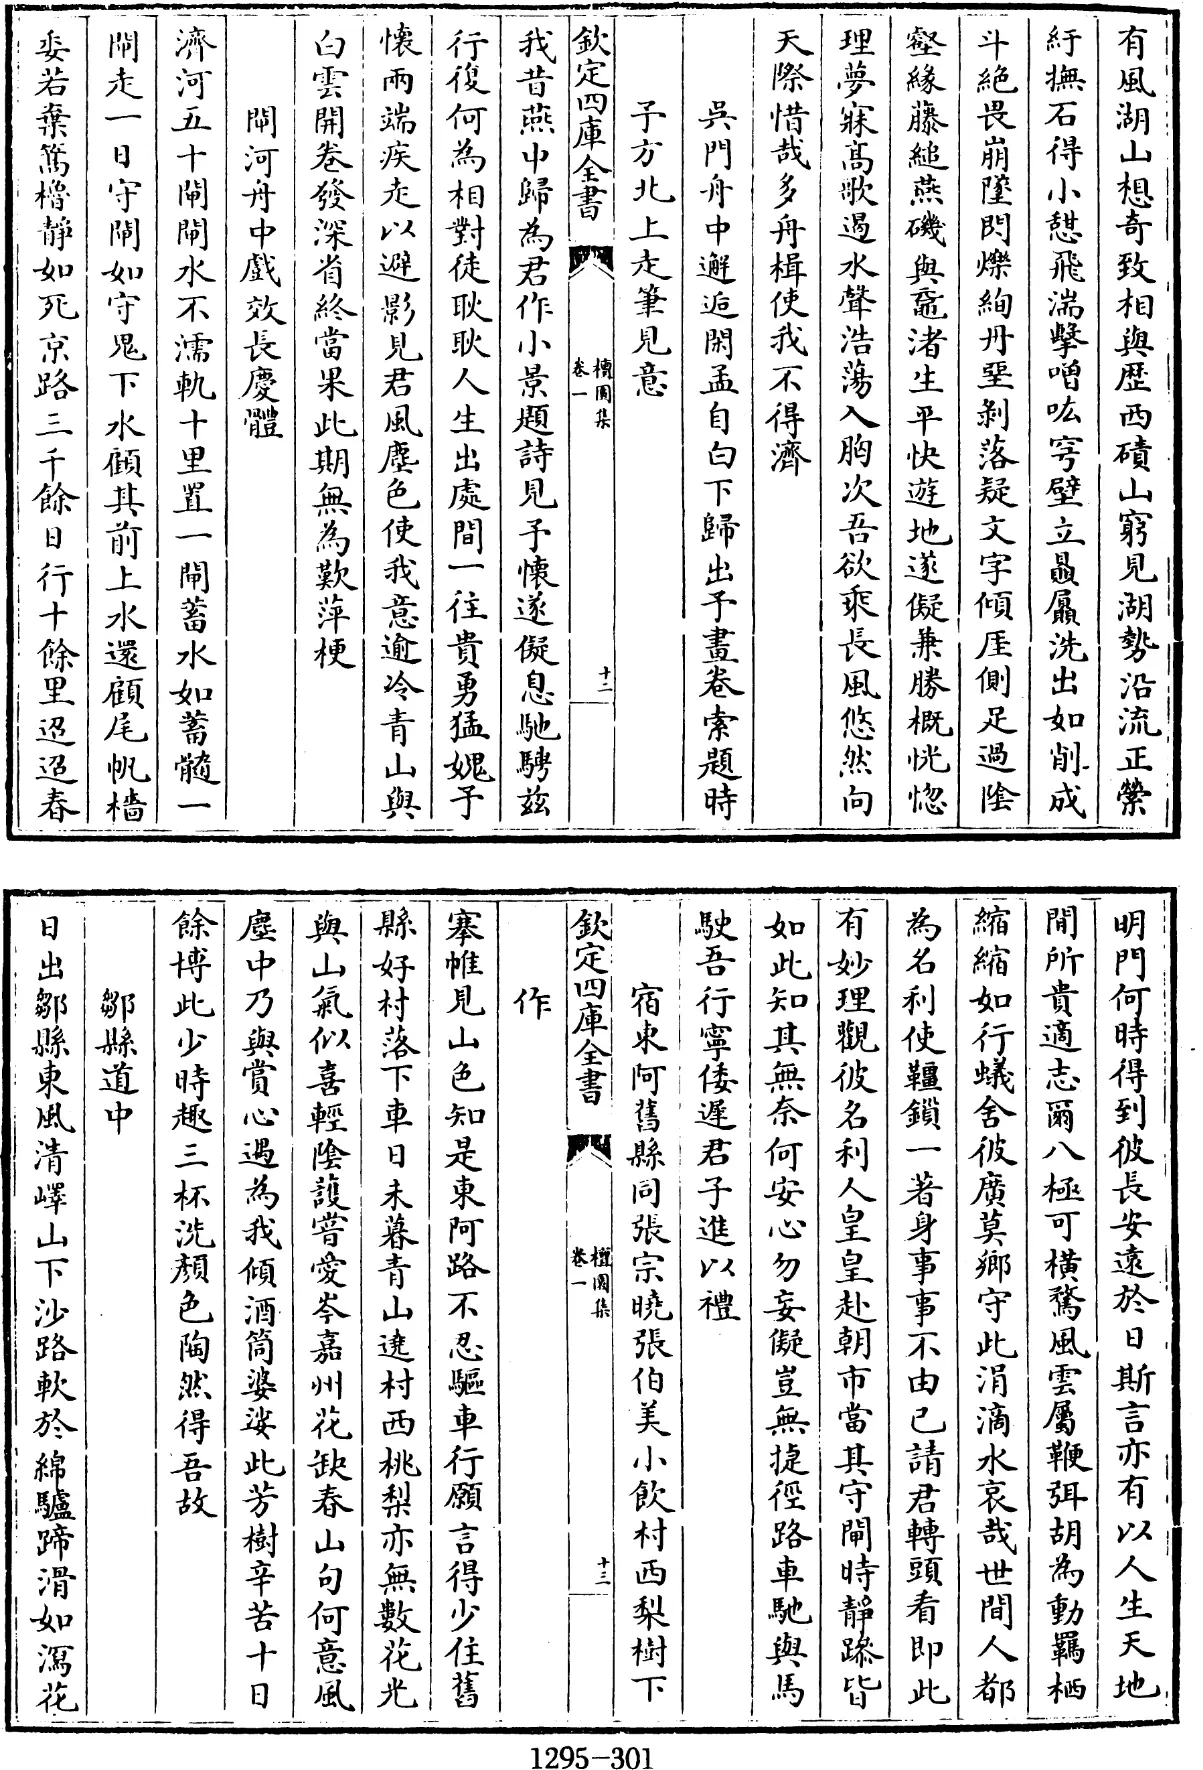 有風湖山想奇致相與歷西磧山窮見湖勢沿流正縈
紆撫石得小憇飛湍擊噌吰穹壁立贔屭洗出如削成
斗絶畏崩墜閃爍絢丹堊剝落疑文字傾厓側足過陰
壑緣藤縋燕磯與黿渚生平快遊地遂儗兼勝概恍惚
理夢寐髙歌過水聲浩蕩入胸次吾欲乘長風悠然向
天際惜哉多舟楫使我不得濟
吳門舟中邂逅閑孟自白下歸出予畫卷索題時
予方北上走筆見意
欽定四庫全書
檀園集
卷一
十二
我昔燕中歸為君作小景題詩見予懷遂儗息馳騁兹
行復何為相對徒耿耿人生出處間一往貴勇猛媿予
懷兩端疾走以避影見君風塵色使我意逾冷青山與
白雲開卷發深省終當果此期無為歎萍梗
閘河舟中戲效長慶體
濟河五十閘閘水不濡軌十里置一閘蓄水如蓄髓一
閘走一日守閘如守鬼下水顧其前上水還顧尾帆檣
委若棄篙櫓靜如死京路三千餘日行十餘里迢迢春
明門何時得到彼長安遠於日斯言亦有以人生天地
間所貴適志爾八極可横騖風雲屬鞭弭胡為動羈栖
縮縮如行蟻舍彼廣莫鄉守此涓滴水哀哉世間人都
為名利使韁鎖一著身事事不由已請君轉頭看即此
有妙理觀彼名利人皇皇赴朝市當其守閘時靜躁皆
如此知其無奈何安心勿妄儗豈無捷徑路車馳與馬
駛吾行寧倭遲君子進以禮
宿東阿舊縣同張宗曉張伯美小飲村西梨樹下
作
欽定四庫全書
檀園集
卷一
十三
搴帷見山色知是東阿路不忍驅車行願言得少住舊
縣好村落下車日未暮青山遶村西桃梨亦無數花光
與山氣似喜輕陰護嘗愛岑嘉州花缺春山句何意風
塵中乃與賞心遇為我傾酒筒婆娑此芳樹辛苦十日
餘博此少時趣三杯洗顏色陶然得吾故
鄒縣道中
日出鄒縣東風清嶧山下沙路軟於綿驢蹄滑如瀉花
1295-301